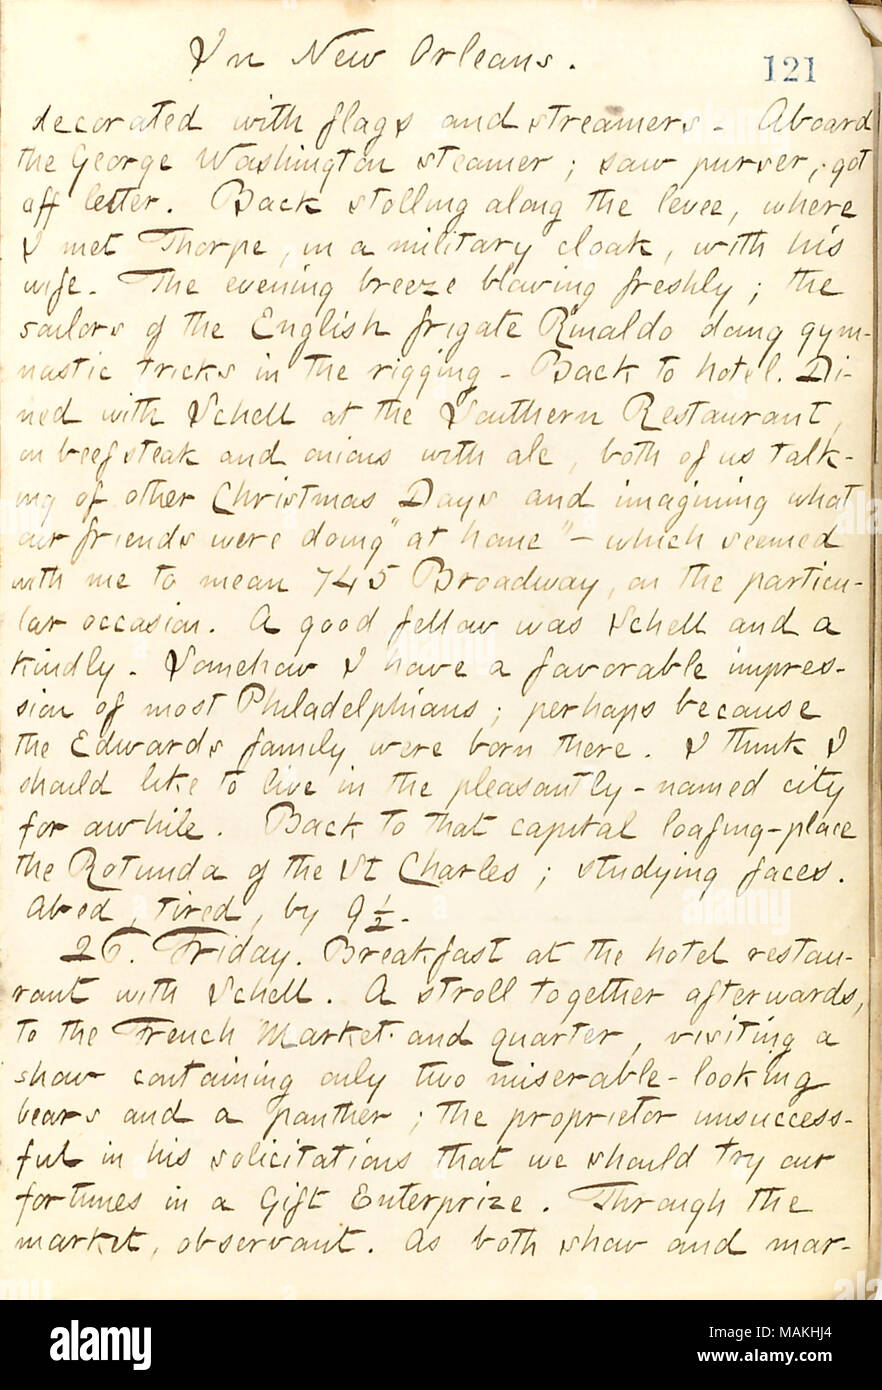 In New Orleans.
121
decorated with flags and streamers. Aboard
the George Washington steamer; saw purser, got
off letter. Back stolling along the levee, where
I met Thorpe, in a military cloak, with his
wife. The evening breeze blowing freshly; the
sailors of the English frigate Rinaldo doing gym-
nastic tricks in the rigging - Back to hotel. Di-
ned with Schell at the Southern Restaurant,
on beefsteak and onions with ale, both of us talk-
ing of other Christmas Days and imagining what
our friends were doing "at home" - which seemed
with me to mean 745 Broadway, on the particu-
lar occasion. A good fellow was Schell and a
kindly. Somehow I have a favorable impres-
sion of most Philadelphians; perhaps because
the Edwards family were born there. I think I
should like to live in the pleasantly-named city
for awhile. Back to that capital loafing-place
the Rotunda of the St Charles; studying faces.
Abed, tired, by 9 1/2.
26. Friday. Breakfast at the hotel restau-
rant with Schell. A stroll together afterwards,
to the French Market and quarter, visiting a
show containing only two miserable-looking
bears and a panther; the proprietor unsuccess-
ful in his solicitations that we should try our
fortunes in a Gift Enterprize. Through the
market, observant. As both show and mar-
alamy
Image ID: MAKHJ4
www.alamy.com